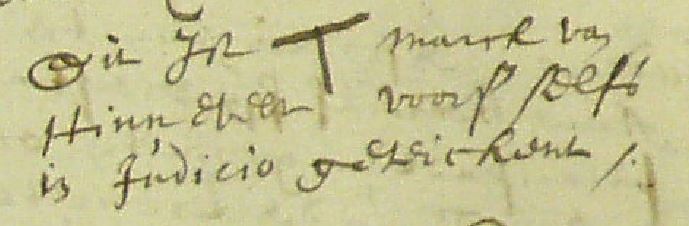 Dit Ist T marck van
Hinn voorß selfs
in Judicio geteickent /.